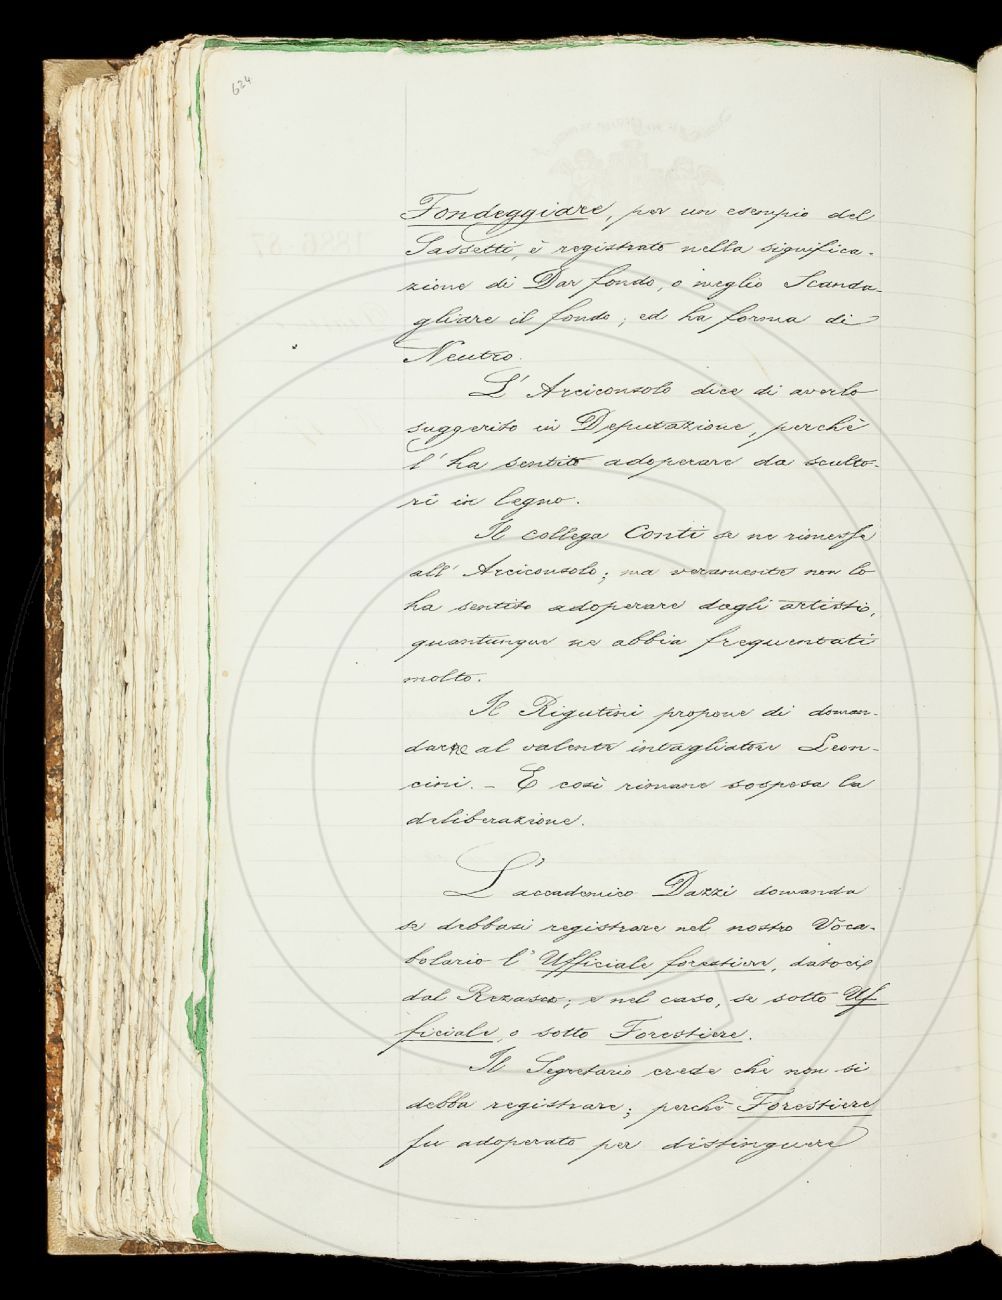 624
Fondeggiare, per un esempio del
Sassetti, è registrato nella significa-
zione di Dar fondo, o meglio Scanda-
gliare il fondo; ed ha forma di
Neutro.
L'Arciconsolo dice di averlo
suggerito in Deputazione, perchè
l'ha sentito adoperare da sculto-
ri in legno.
Il collega Conti se ne rimesse
all'Arciconsolo; ma veramente non lo
ha sentito adoperare dagli artisti,
quantunque ne abbia frequentati
molto.
Il Rigutini propone di doman-
darne al valente intagliatore Leon-
cini. - E così rimane sospesa la
deliberazione.
L'accademico Dazzi domanda
se debbasi registrare nel nostro Voca-
bolario l'Ufficiale forestiere, datoci
dal Rezasco; e nel caso, se sotto Uf
ficiale, o sotto Forestiere.
Il Segretario crede che non si
debba registrare; perchè Forestiere
fu adoperato per distinguere